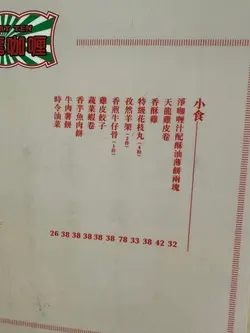 咖喱
小食
淨咖喱汁配酥油薄餅兩塊
天龍雞皮卷
香酥雞
特級花枝丸
孜然羊架
香煎牛仔骨
雞皮餃子
蔬菜蝦卷
香芋魚肉餅
牛肉薯餅
時令油菜
26 38 38 38 38 38 78 33 38 42 32